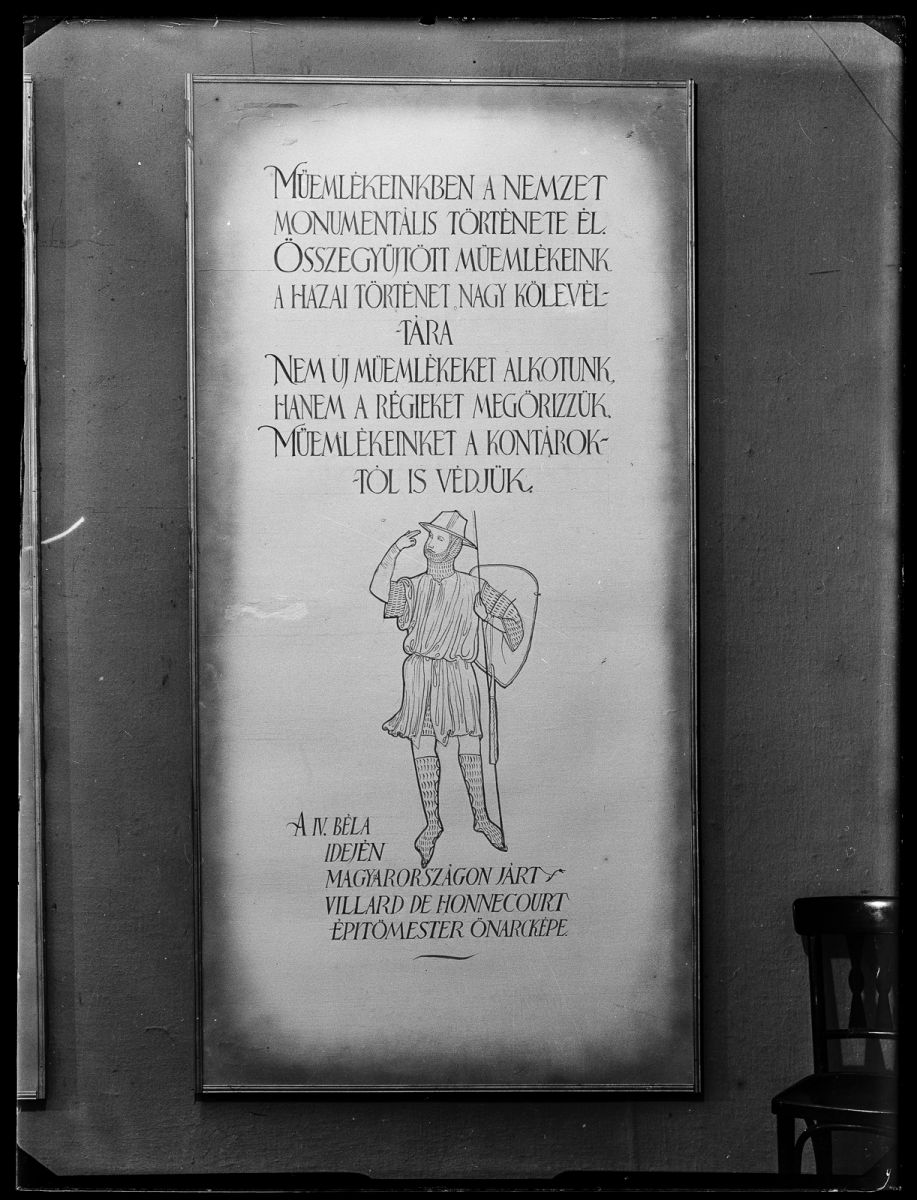 MŰEMLÉKEINKBEN A NEMZET
MONUMENTÁLIS TÖRTÉNETE ÉL.
ÖSSZEGYÜJTÖTT MŰEMLÉKEINK
A HAZAI TÖRTÉNET NAGY KÖLEVÉL-
-TÁRA
NEM ÚJ MŰEMLÉKEKET ALKOTUNK,
HANEM A RÉGIEKET MEGÖRIZZÜK.
MŰEMLÉKEINKET A KONTÁROK-
-TÓL IS VÉDJÜK.
A IV. BÉLA
IDEJÉN
MAGYARORSZÁGON JÁRT
VILLARD DE HONNECOURT
ÉPITÖMESTER ÖNARCKÉPE.